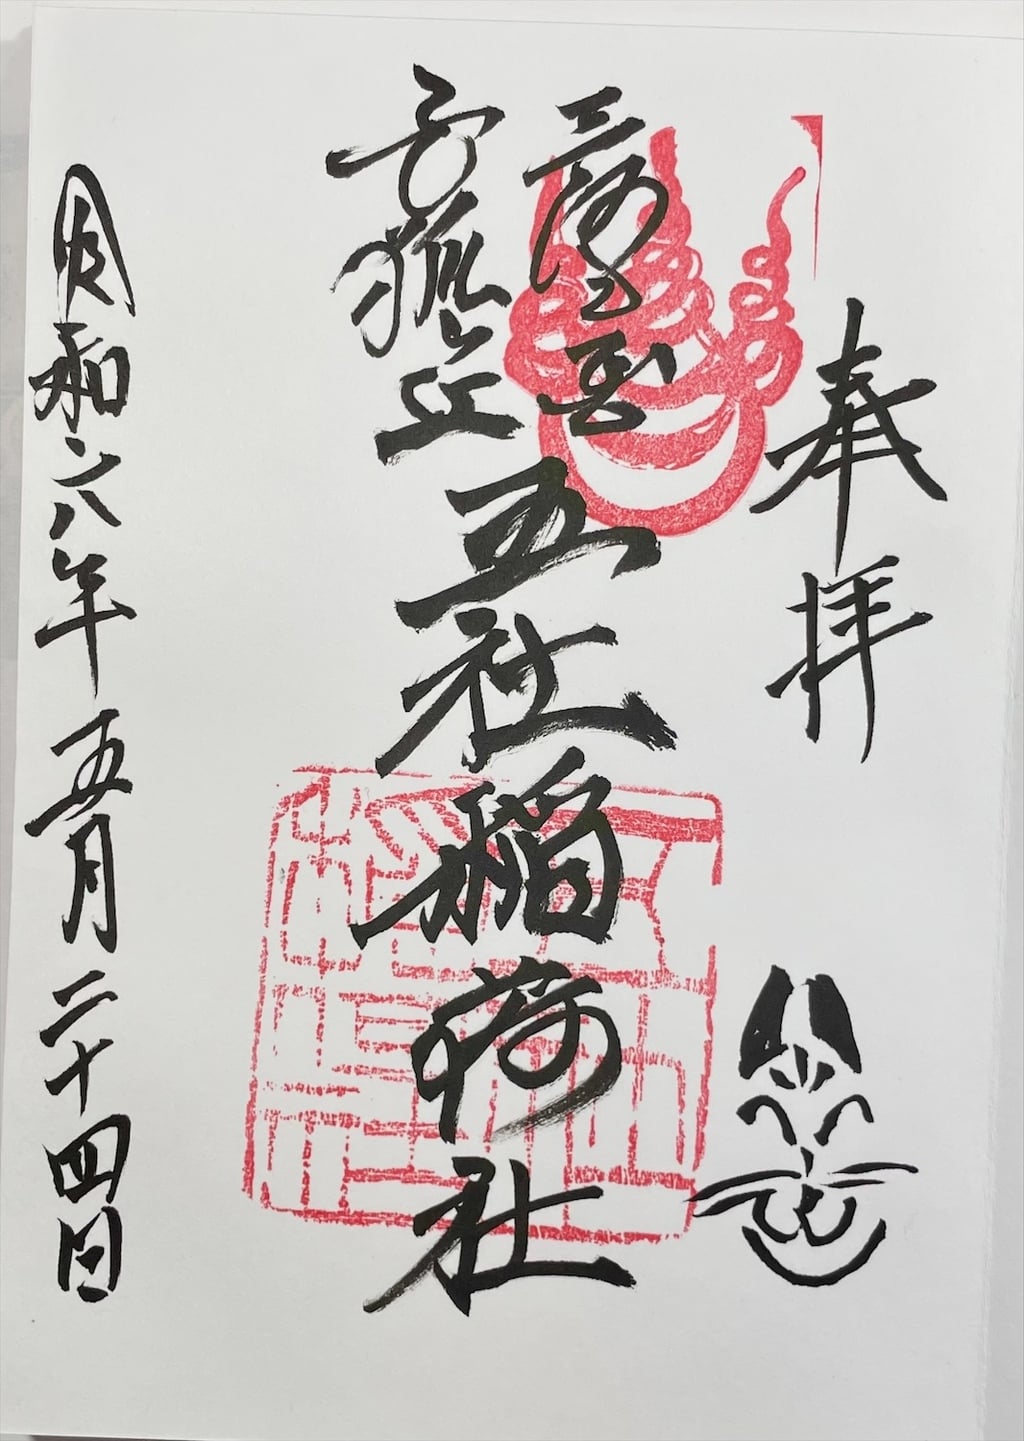 奉拝
三河
子狐 丘
五社稲荷社
令和六年五月二十四日